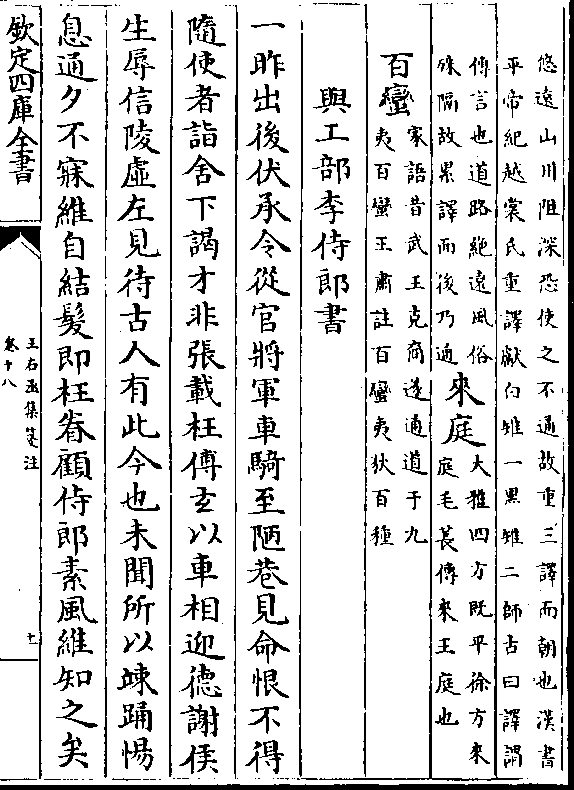 悠遠山川阻深恐使之不通故重三譯而朝也漢書
平帝紀越裳氏重譯獻白雉一黑雉二師古曰譯謂
傳言也道路絶遠風俗
殊隔故累譯而後乃通
來庭
大雅四方既平徐方來
庭毛萇傳來王庭也
百蠻
家語昔武王克商遂通道于九
夷百蠻王肅註百蠻夷狄百種
與工部李侍郎書
一昨出後伏承令從官將軍車騎至陋巷見命恨不得
隨使者詣舍下謁才非張載枉傅玄以車相迎德謝侯
生辱信陵虛左見待古人有此今也未聞所以竦踊惕
息通夕不寐維自結髮即枉眷顧侍郎素風維知之矣
欽定四庫全書
王右丞集箋注
卷十八